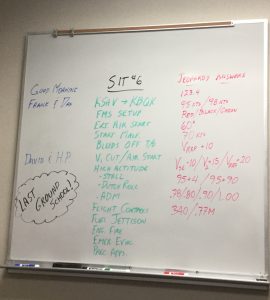 Good Morning
Frank & Dan
David & H.P.
LAST
GROUND
SCHOOL!
SIT #6
KSAV → KBQK
FMS SETUP
EXT AIR START
START MALF
BLEEDS OFF T/O
V1 CUT / AIR START
HIGH ALTITUDE
- STALL
- DUTCH ROLL
- ADM
FLIGHT CONTROLS
FUEL JETTISON
ENG FIRE
EMER EVAC
PREC APP
JEOPARDY ANSWERS
123.4
RED / BLACK / GREEN
60°
70 KTS
VREF +10
-10 / +15 / +20
95+4 / 95+90
.78/.80/.90/1.00
340/.77M